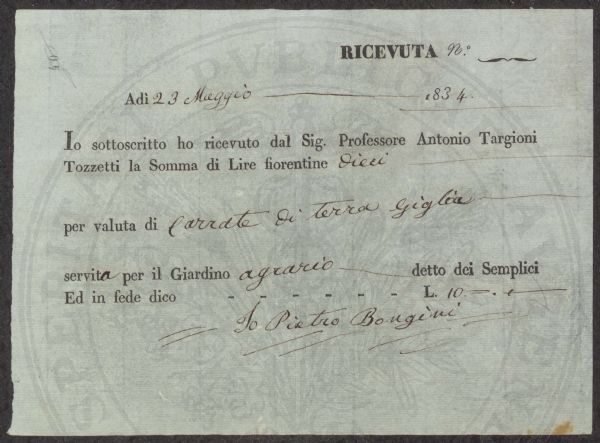 RICEVUTA N.º
Adì 23 Maggio 1834.
Io sottoscritto ho ricevuto dal Sig. Professore Antonio Targioni
Tozzetti la Somma di Lire fiorentine dieci
per valuta di Carrate di terra Giglia
servita per il Giardino agrario detto dei Semplici
Ed in fede dico - - - - - - L. 10 -. -
Io Pietro Bongini